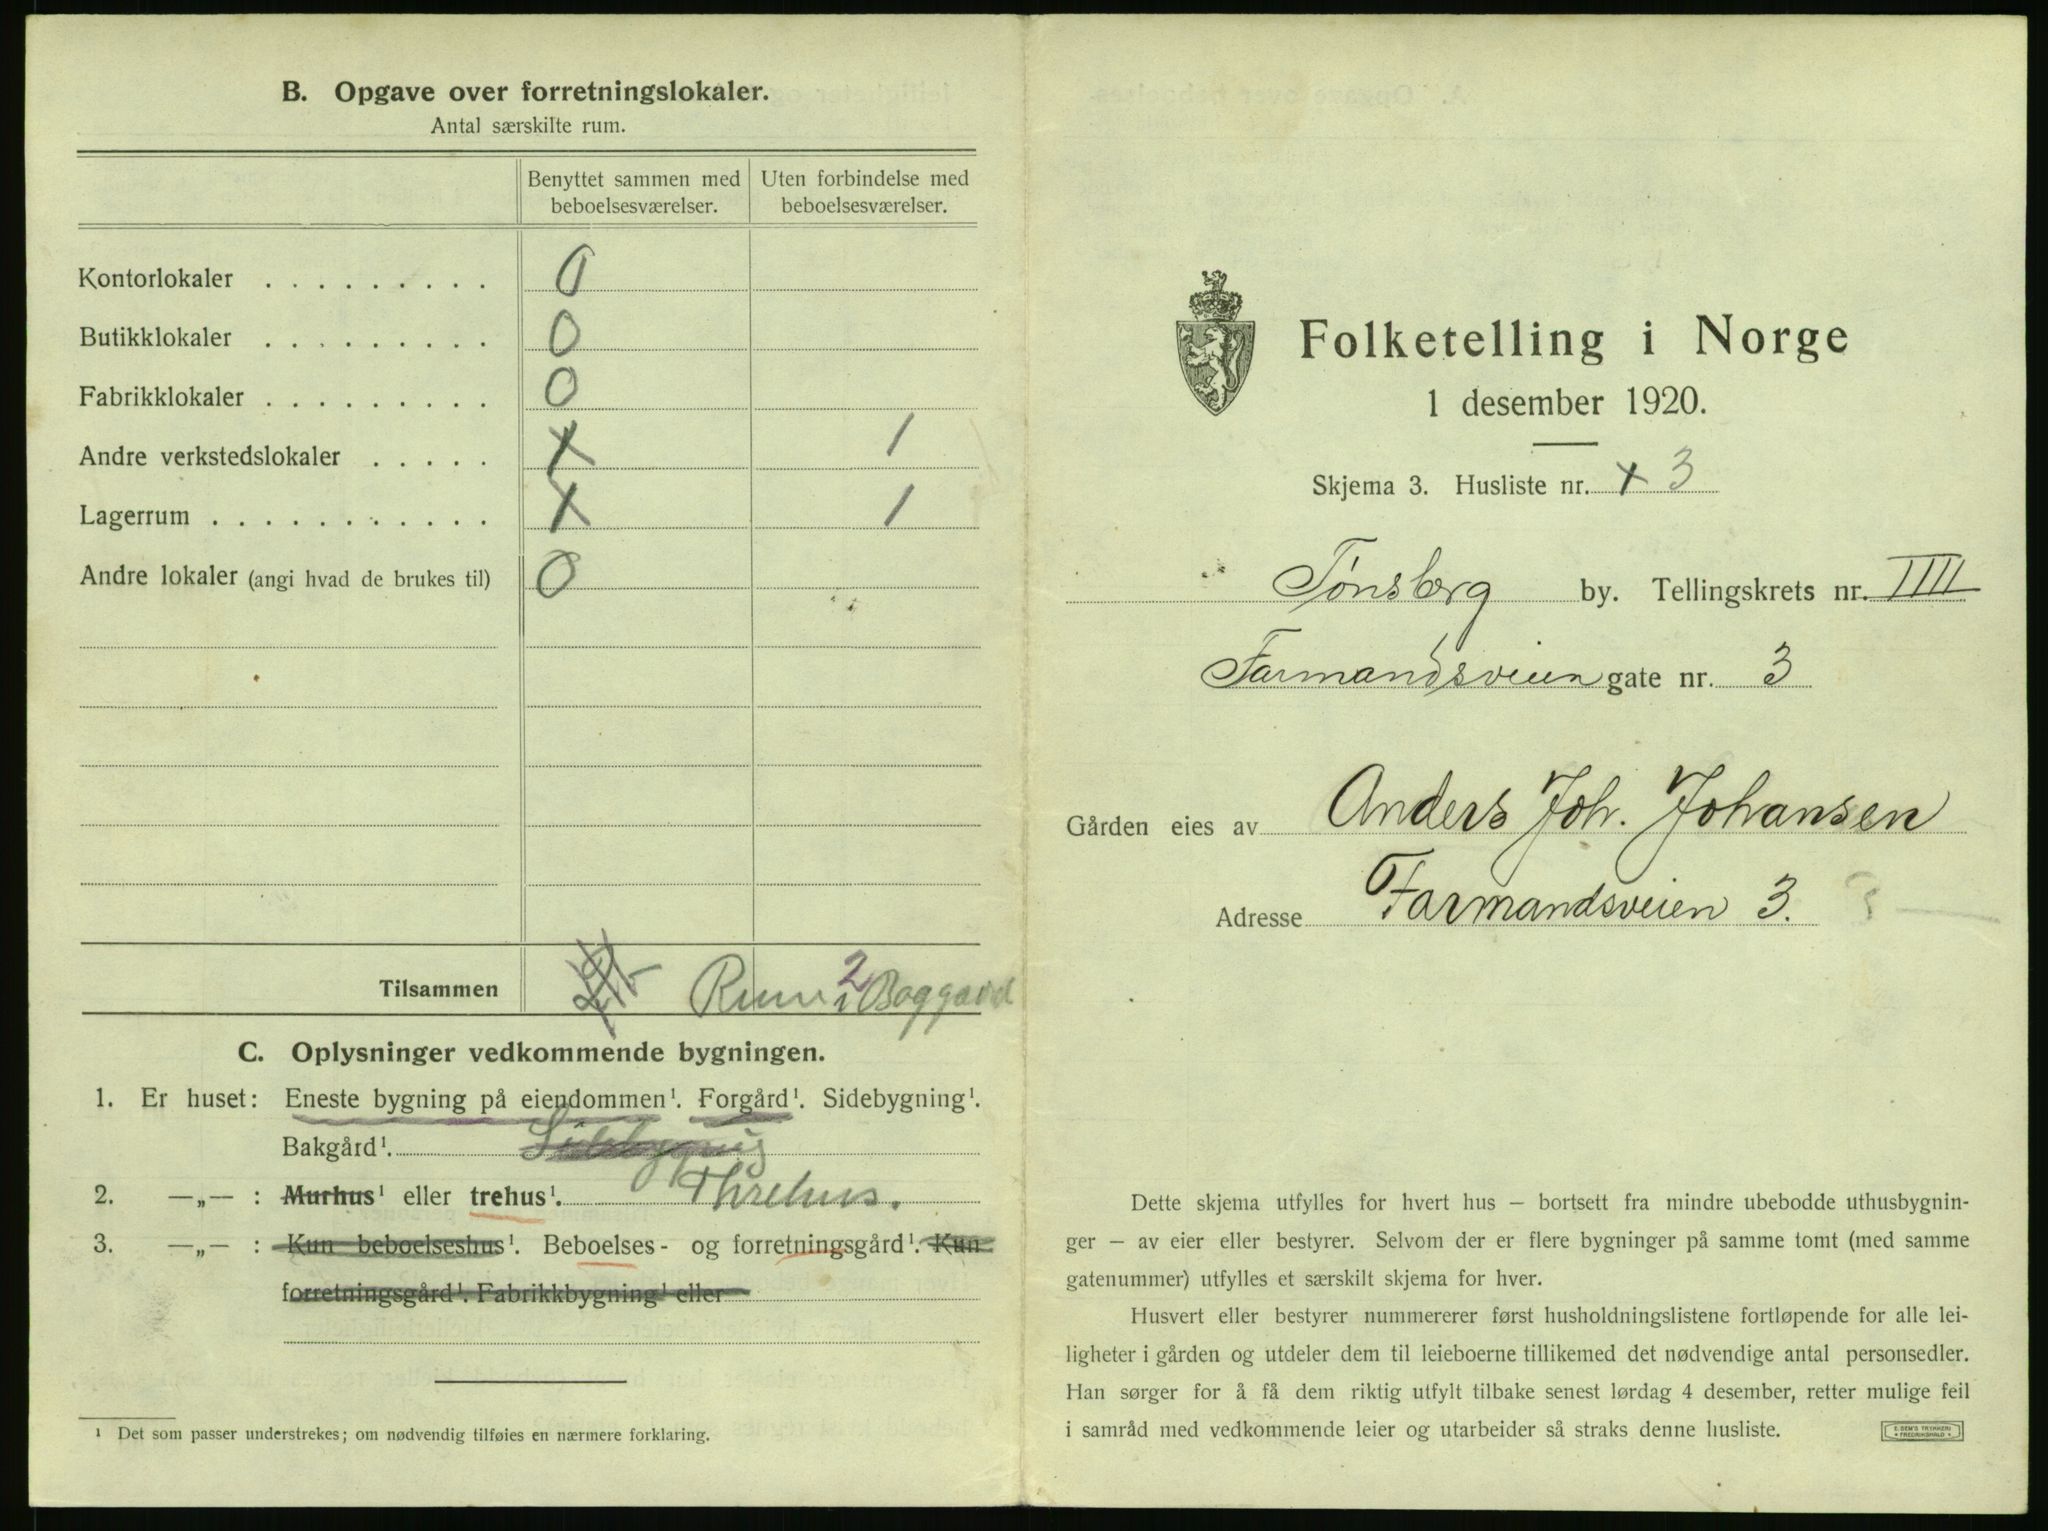 B. Opgave over forretningslokaler.
Antal særskilte rum.
Benyttet sammen med beboelsesværelser.
Uten forbindelse med beboelsesværelser.
Kontorlokaler . . . . . . . . . 0
Butikklokaler . . . . . . . . . 0
Fabrikklokaler . . . . . . . . . 0
Andre verkstedslokaler . . . . . X 1
Lagerrum . . . . . . . . . . . . X 1
Andre lokaler (angi hvad de brukes til) 0
Tilsammen Rum 2 i Baggaard
C. Oplysninger vedkommende bygningen.
1. Er huset: Eneste bygning på eiendommen¹. Forgård¹. Sidebygning¹.
Bakgård¹. Sidebygning
2. —„— : Murhus¹ eller trehus¹. Threhus.
3. —„— : Kun beboelseshus¹. Beboelses- og forretningsgård¹. Kun
forretningsgård¹. Fabrikkbygning¹ eller
¹ Det som passer understrekes; om nødvendig tilføies en nærmere forklaring.
Folketelling i Norge
1 desember 1920.
Skjema 3. Husliste nr. X 3
Tønsberg by. Tellingskrets nr. IIII
Farmandsveien gate nr. 3
Gården eies av Anders Joh. Johansen
Adresse Farmandsveien 3.
Dette skjema utfylles for hvert hus – bortsett fra mindre ubebodde uthusbygnin-
ger – av eier eller bestyrer. Selvom der er flere bygninger på samme tomt (med samme
gatenummer) utfylles et særskilt skjema for hver.
Husvert eller bestyrer nummererer først husholdningslistene fortløpende for alle lei-
ligheter i gården og utdeler dem til leieboerne tillikemed det nødvendige antal personsedler.
Han sørger for å få dem riktig utfylt tilbake senest lørdag 4 desember, retter mulige feil
i samråd med vedkommende leier og utarbeider så straks denne husliste.
E. SEM'S TRYKKERI
FREDRIKSHALD